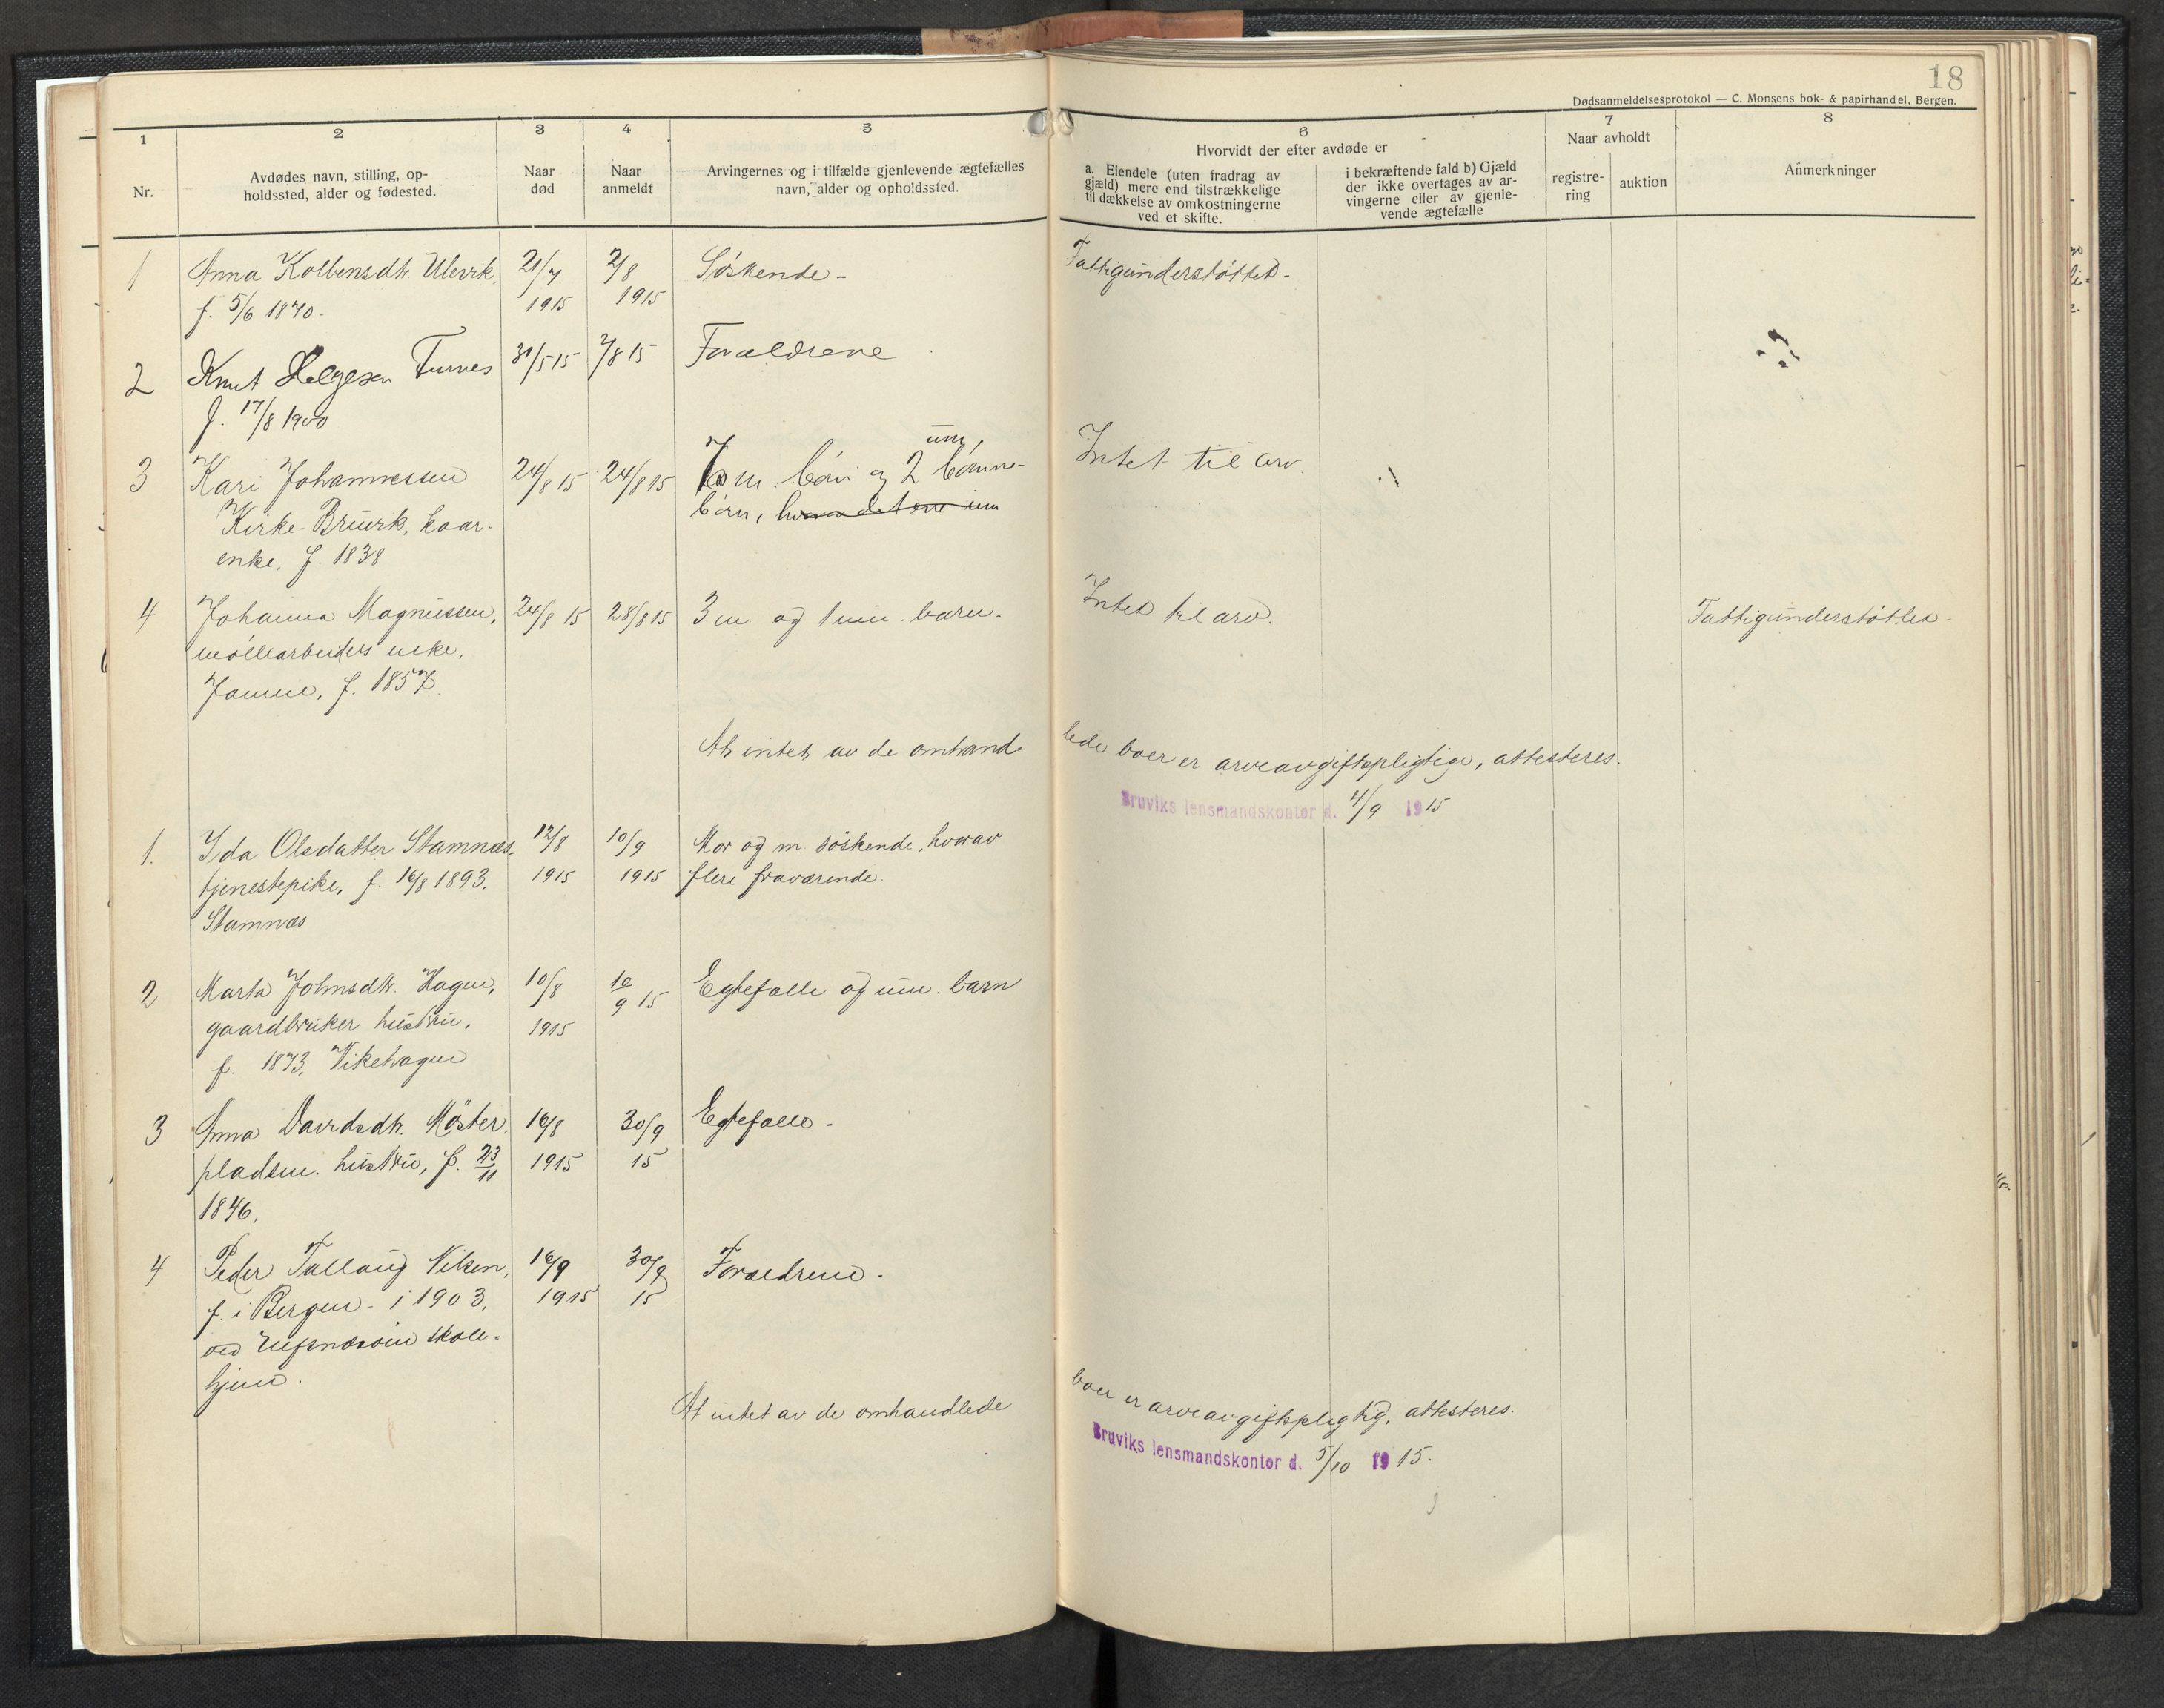 18
Dødsanmeldelsesprotokol — C. Monsens bok- & papirhandel, Bergen.
1 2 3 4 5 6 7 8
Nr.
Avdødes navn, stilling, op-
holdssted, alder og fødested.
Naar
død
Naar
anmeldt
Arvingernes og i tilfælde gjenlevende ægtefælles
navn, alder og opholdssted.
Hvorvidt der efter avdøde er
a. Eiendele (uten fradrag av
gjæld) mere end tilstrækkelige
til dækkelse av omkostningerne
ved et skifte.
i bekræftende fald b) Gjæld
der ikke overtages av ar-
vingerne eller av gjenle-
vende ægtefælle
Naar avholdt
registre-
ring
auktion
Anmerkninger
1 Anna Kolbensdtr. Ulevik, 21/7 2/8 Søskende - Fattigunderstøttet -
f. 5/6 1870. 1915 1915
2 Knut Helgesen Furnes 31/5 15 2/8 15 Forældrene
f. 17/8 1900
3 Kari Johannessen 24/8 15 24/8 15 m. børn og 2 um. børne- Intet til arv.
Kirke-Bruvik, kaar- børn,
enke, f. 1838
4 Johanna Magnussen, 24/8 15 28/8 15 3 m og 1 um. barn. Intet til arv. Fattigunderstøttet -
møllearbeiders enke,
f. 1857.
At intet av de omhand- lede boer er arveavgiftspligtige, attesteres.
Bruviks lensmandskontor d. 4/9 1915
1. Ida Olsdatter Stamnæs, 12/8 10/9 Mor og m. søskende, hvorav
tjenestepike, f. 16/8 1893. 1915 1915 flere fraværende.
Stamnæs
2 Marta Johnsdtr. Hagen, 10/8 10/9 15 Egtefælle og um. barn
gaardbruker hustru, 1915
f. 1873, Vikehagen
3 Anna Davidsdtr. Møster, 16/8 30/9 Egtefælle -
pladsm. hustru, f. 23/11 1915 15
1846,
4 Peder Tallaug Nilsen, 16/9 30/9 Forældrene -
f. i Bergen - i 1903, 1915 15
ved skole-
hjem.
At intet av de omhandlede boer er arveavgiftspligtig, attesteres.
Bruviks lensmandskontor d. 5/10 1915.